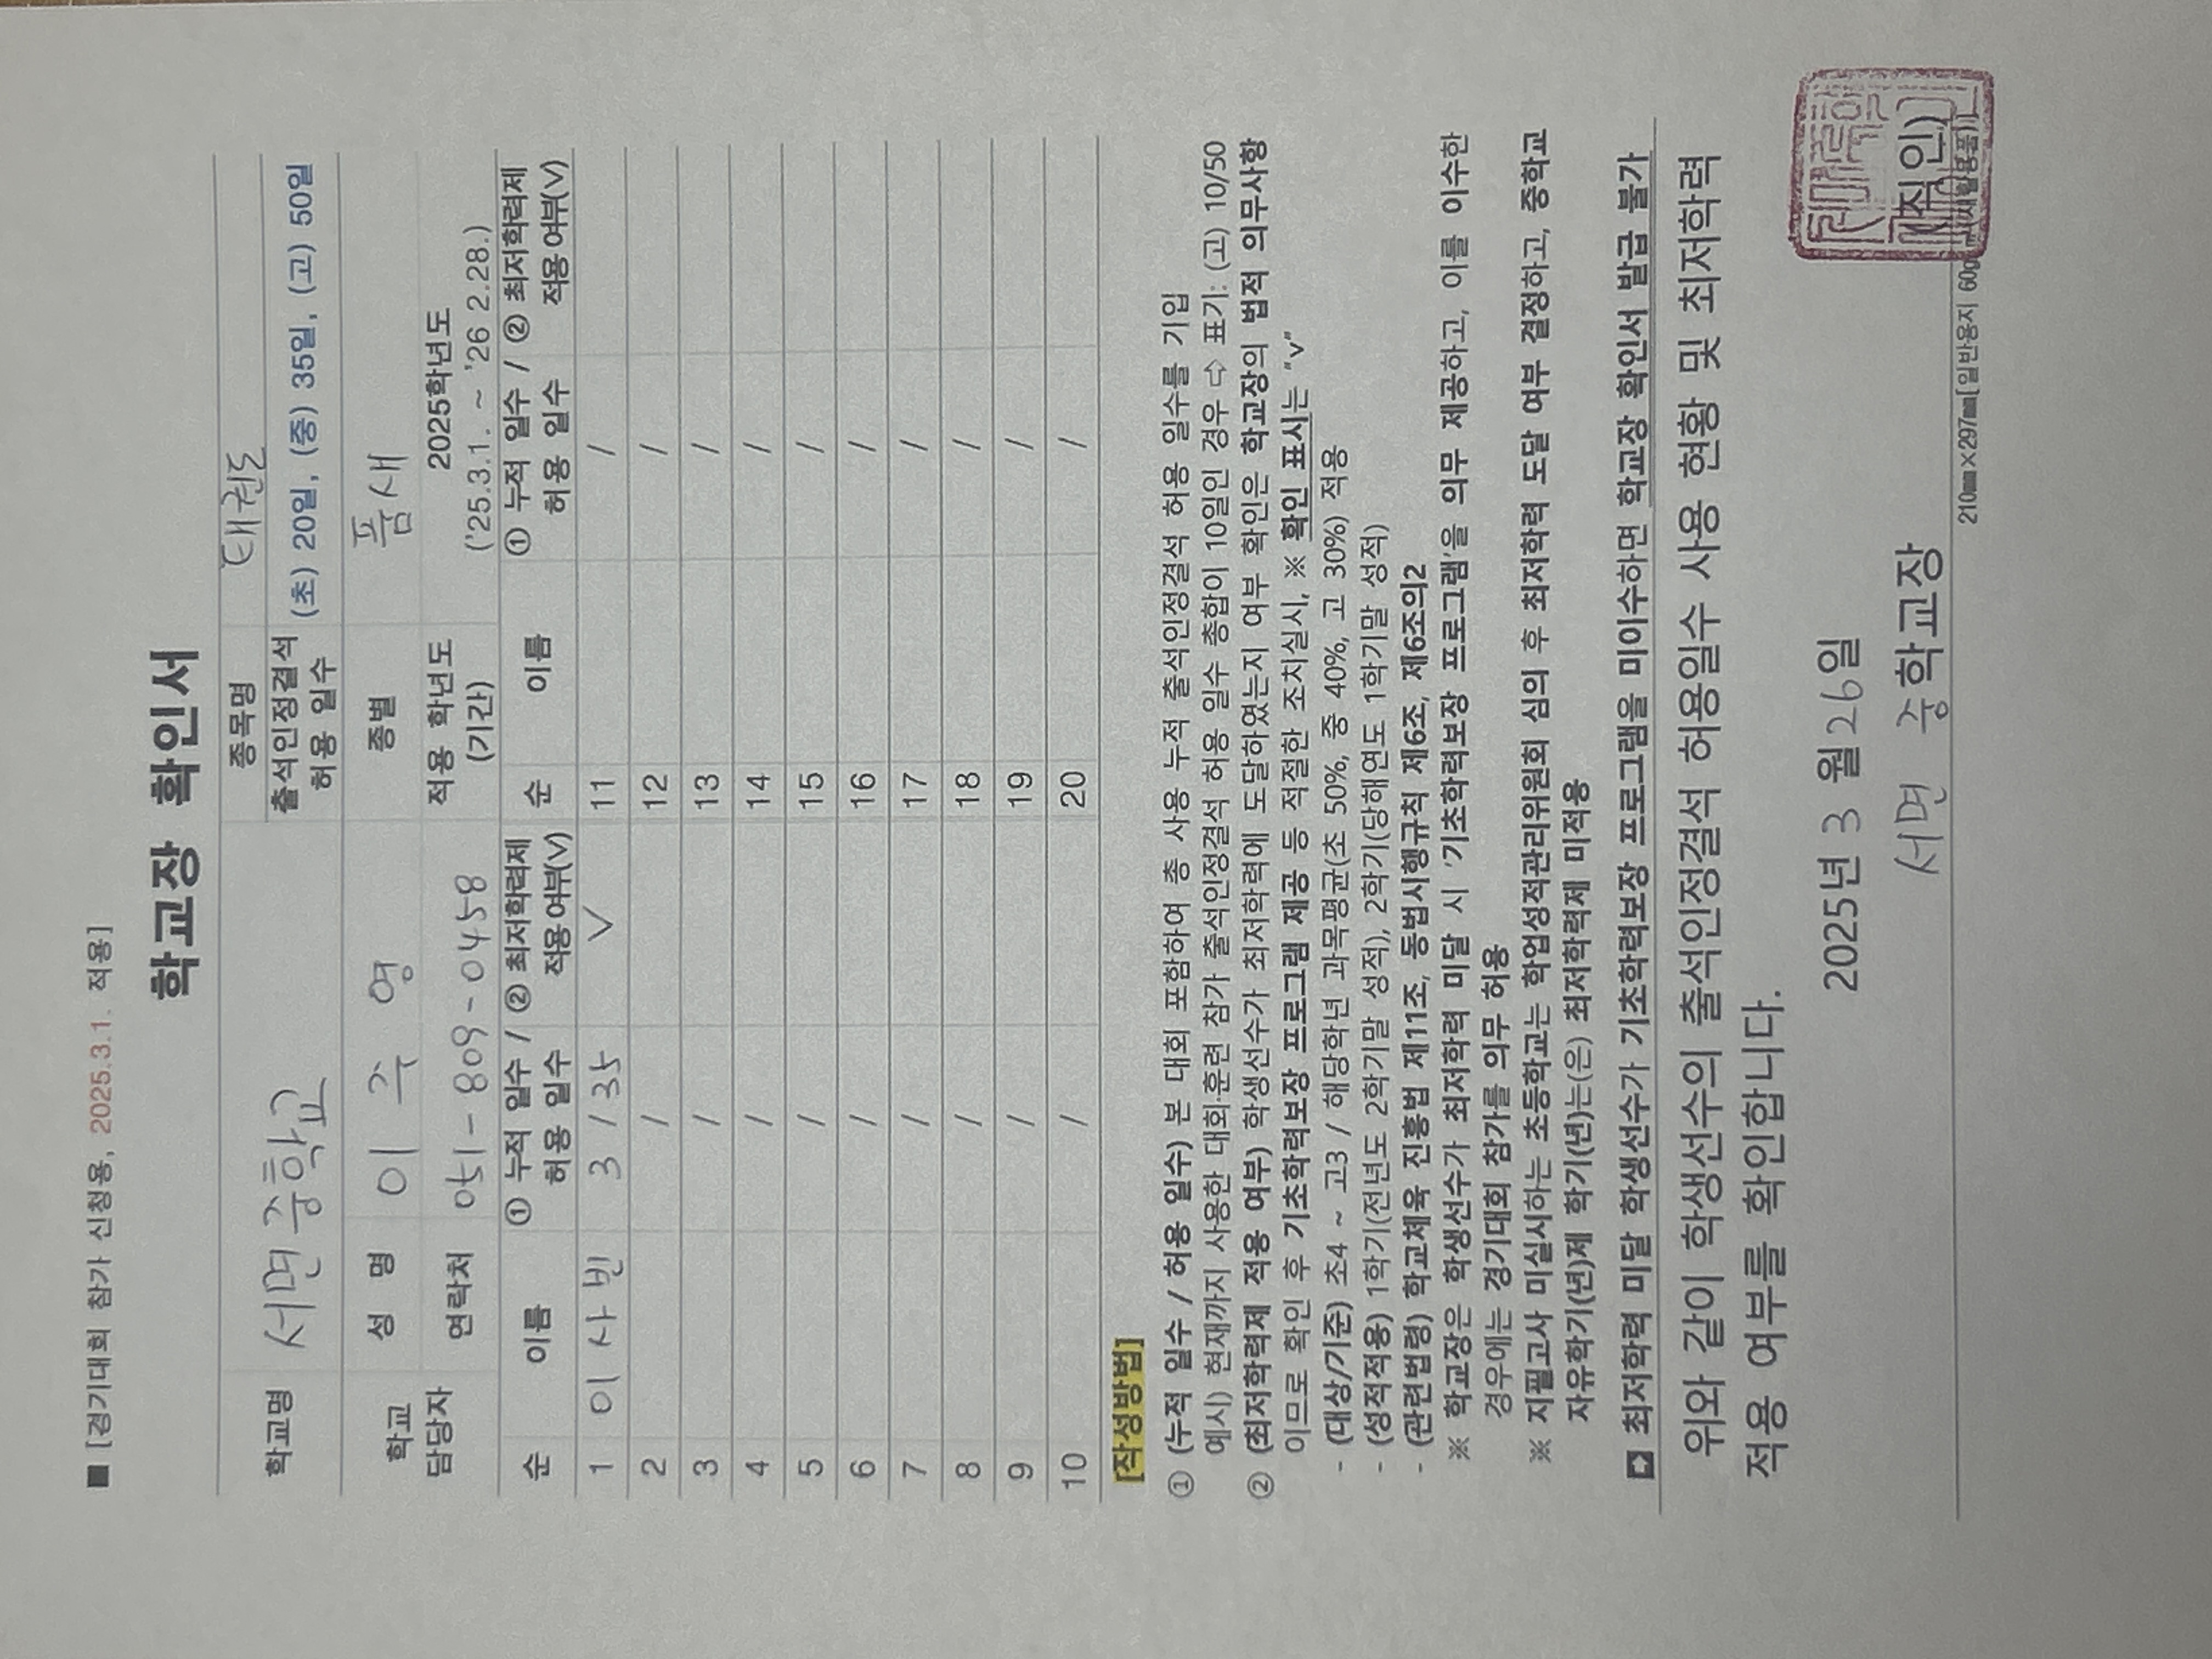 ■ [경기대회 참가 신청용, 2025.3.1. 적용]
학교장 확인서
학교명 서면중학교 종목명 태권도
출석인정결석 허용 일수 (초) 20일, (중) 35일, (고) 50일
학교 담당자 성 명 이 주 영 종별 품새
연락처 051-809-0458 적용 학년도 (기간) 2025학년도 ('25.3.1. ~ '26 2.28.)
순 이름 ① 누적 일수 / 허용 일수 ② 최저학력제 적용여부(V) 순 이름 ① 누적 일수 / 허용 일수 ② 최저학력제 적용여부(V)
1 이 사 빈 3 / 35 V 11 /
2 / 12 /
3 / 13 /
4 / 14 /
5 / 15 /
6 / 16 /
7 / 17 /
8 / 18 /
9 / 19 /
10 / 20 /
[작성방법]
① (누적 일수 / 허용 일수) 본 대회 포함하여 총 사용 누적 출석인정결석 허용 일수를 기입
예시) 현재까지 사용한 대회훈련 참가 출석인정결석 허용 일수 총합이 10일인 경우 ⇨ 표기: (고) 10/50
② (최저학력제 적용 여부) 학생선수가 최저학력에 도달하였는지 여부 확인은 학교장의 법적 의무사항
이므로 확인 후 기초학력보장 프로그램 제공 등 적절한 조치실시, ※ 확인 표시는 "v"
- (대상/기준) 초4 ~ 고3 / 해당학년 과목평균(초 50%, 중 40%, 고 30%) 적용
- (성적적용) 1학기(전년도 2학기말 성적), 2학기(당해연도 1학기말 성적)
- (관련법령) 학교체육 진흥법 제11조, 동법시행규칙 제6조, 제6조의2
※ 학교장은 학생선수가 최저학력 미달 시 '기초학력보장 프로그램'을 의무 제공하고, 이를 이수한
경우에는 경기대회 참가를 의무 허용
※ 지필고사 미실시하는 초등학교는 학업성적관리위원회 심의 후 최저학력 도달 여부 결정하고, 중학교
자유학기(년)제 학기(년)는(은) 최저학력제 미적용
최저학력 미달 학생선수가 기초학력보장 프로그램을 미이수하면 학교장 확인서 발급 불가
위와 같이 학생선수의 출석인정결석 허용일수 사용 현황 및 최저학력
적용 여부를 확인합니다.
2025년 3 월 26일
서면 중학교장 (직인)
210㎜×297㎜[일반용지 60g/㎡(재활용품)]